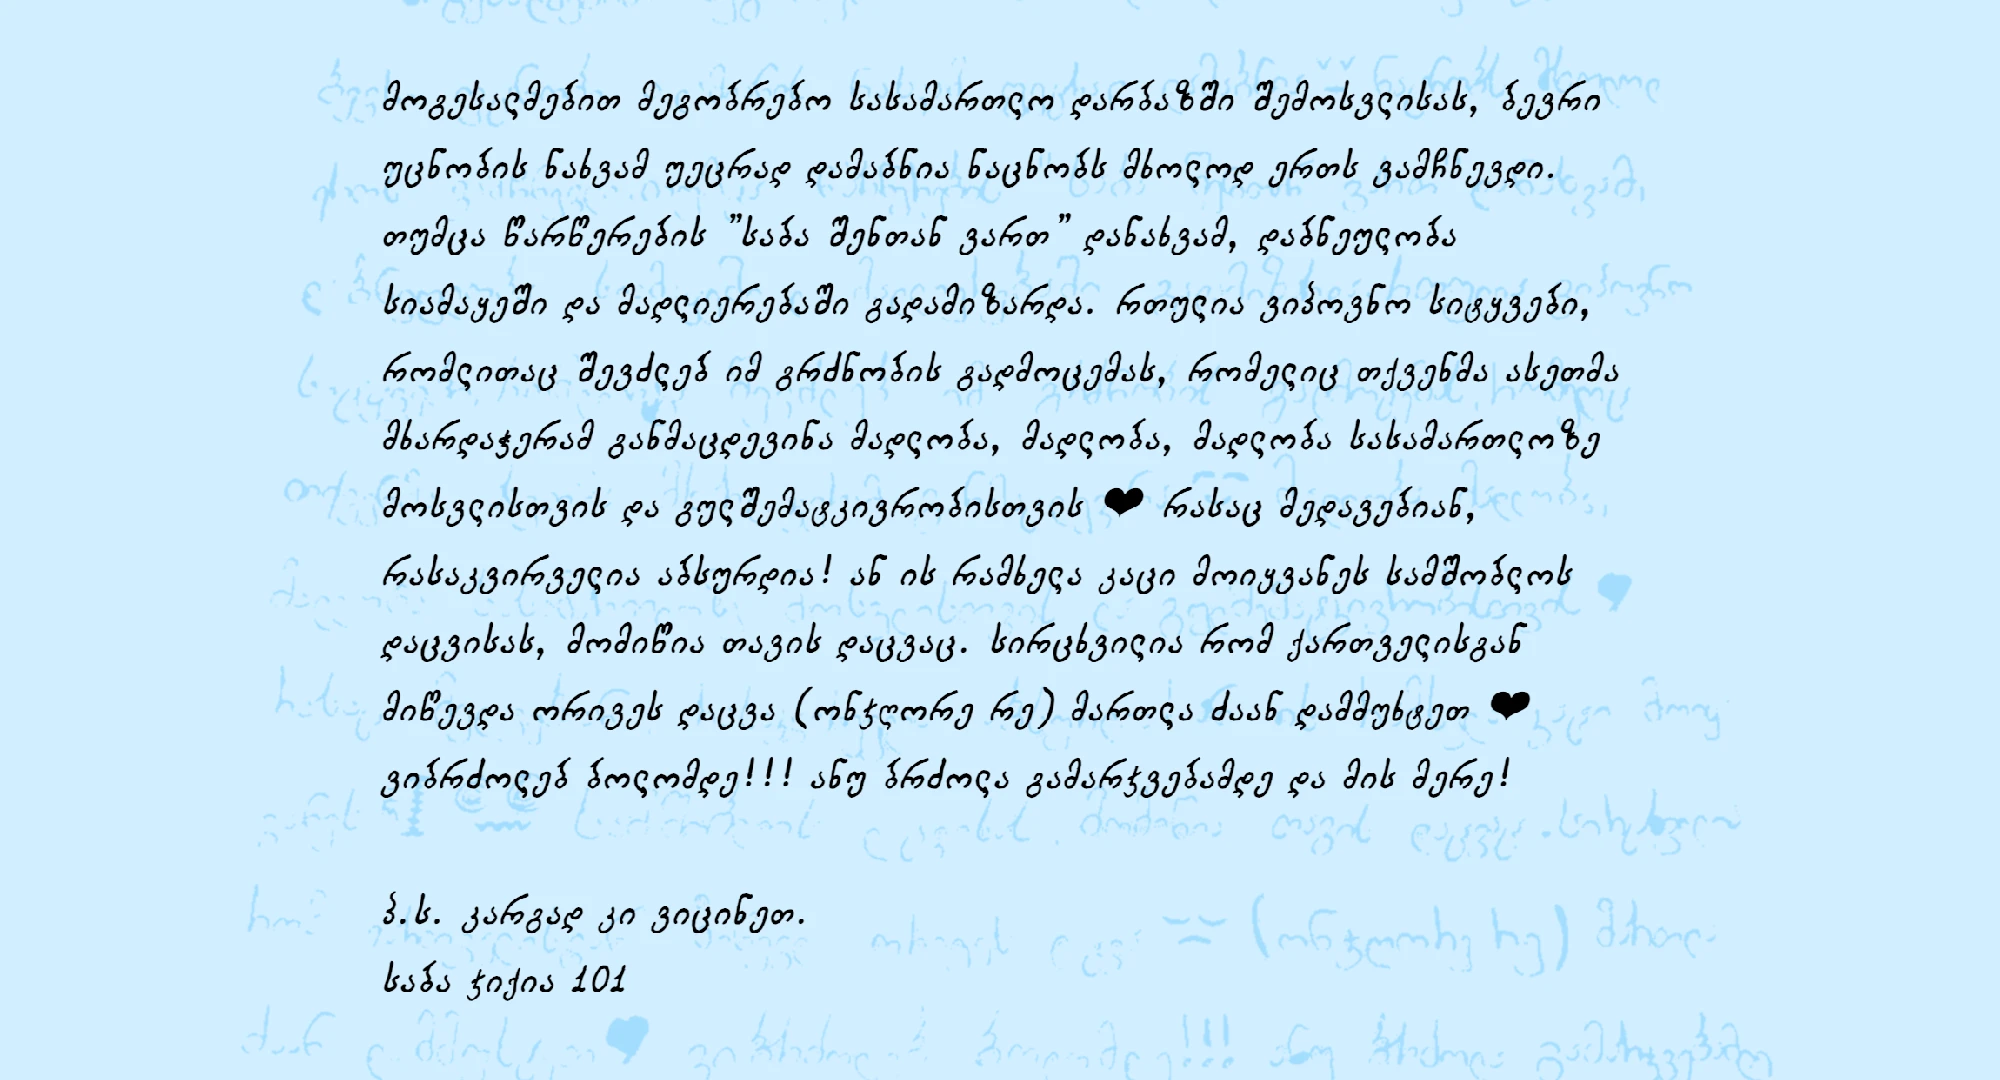 მოგესალმებით მეგობრებო სასამართლო დარბაზში შემოსვლისას, ბევრი
უცნობის ნახვამ უეცრად დამაბნია ნაცნობს მხოლოდ ერთს ვამჩნევდი.
თუმცა წარწერების "საბა შენთან ვართ" დანახვამ, დაბნეულობა
სიამაყეში და მადლიერებაში გადამიზარდა. რთულია ვიპოვნო სიტყვები,
რომლითაც შევძლებ იმ გრძნობის გადმოცემას, რომელიც თქვენმა ასეთმა
მხარდაჭერამ განმაცდევინა მადლობა, მადლობა, მადლობა სასამართლოზე
მოსვლისთვის და გულშემატკივრობისთვის ❤ რასაც მედავებიან,
რასაკვირველია აბსურდია! ან ის რამხელა კაცი მოიყვანეს სამშობლოს
დაცვისას, მომიწია თავის დაცვაც. სირცხვილია რომ ქართველისგან
მიწევდა ორივეს დაცვა (ონჯღორე რე) მართლა ძაან დამმუხტეთ ❤
ვიბრძოლებ ბოლომდე!!! ანუ ბრძოლა გამარჯვებამდე და მის მერე!
პ.ს. კარგად კი ვიცინეთ.
საბა ჯიქია 101